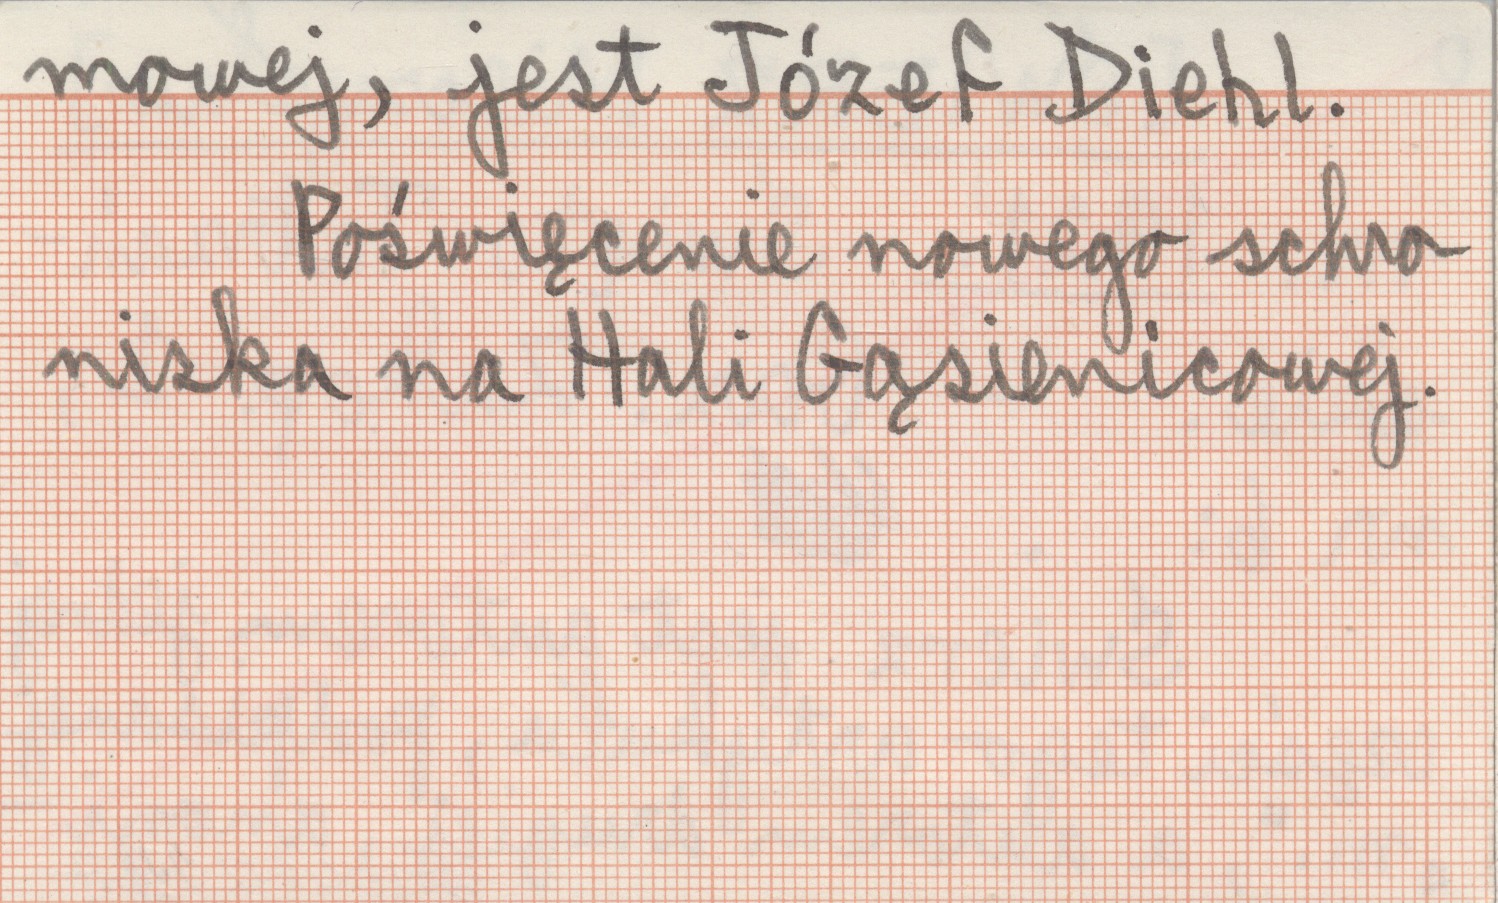 mowej, jest Józef Diehl.
Poświęcenie nowego schro
niska na Hali Gąsienicowej.